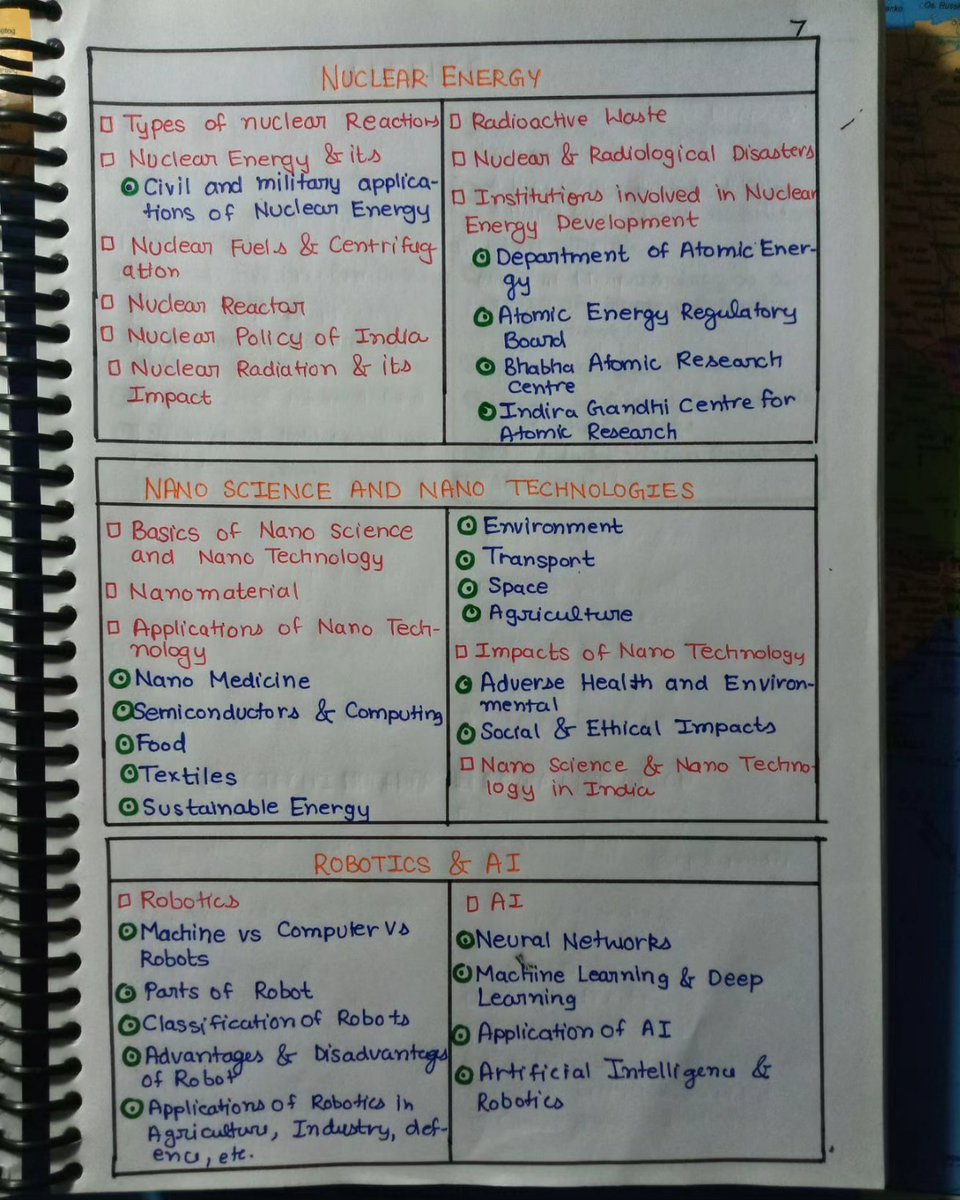 7
NUCLEAR ENERGY
Types of nuclear Reactions
Nuclear Energy & its
Civil and military applica-
tions of Nuclear Energy
Nuclear Fuels & Centrifug
ation
Nuclear Reactor
Nuclear Policy of India
Nuclear Radiation & its
Impact
Radioactive Waste
Nuclear & Radiological Disasters
Institutions involved in Nuclear
Energy Development
Department of Atomic Ener-
gy
Atomic Energy Regulatory
Board
Bhabha Atomic Research
Centre
Indira Gandhi Centre for
Atomic Research
NANO SCIENCE AND NANO TECHNOLOGIES
Basics of Nano Science
and Nano Technology
Nanomaterial
Applications of Nano Tech-
nology
Nano Medicine
Semiconductors & Computing
Food
Textiles
Sustainable Energy
Environment
Transport
Space
Agriculture
Impacts of Nano Technology
Adverse Health and Environ-
mental
Social & Ethical Impacts
Nano Science & Nano Techno-
logy in India
ROBOTICS & AI
Robotics
Machine vs Computer Vs
Robots
Parts of Robot
Classification of Robots
Advantages & Disadvantegs
of Robot
Applications of Robotics in
Agriculture, Industry, def-
ence, etc.
AI
Neural Networks
Machine Learning & Deep
Learning
Application of AI
Artificial Intelligence &
Robotics